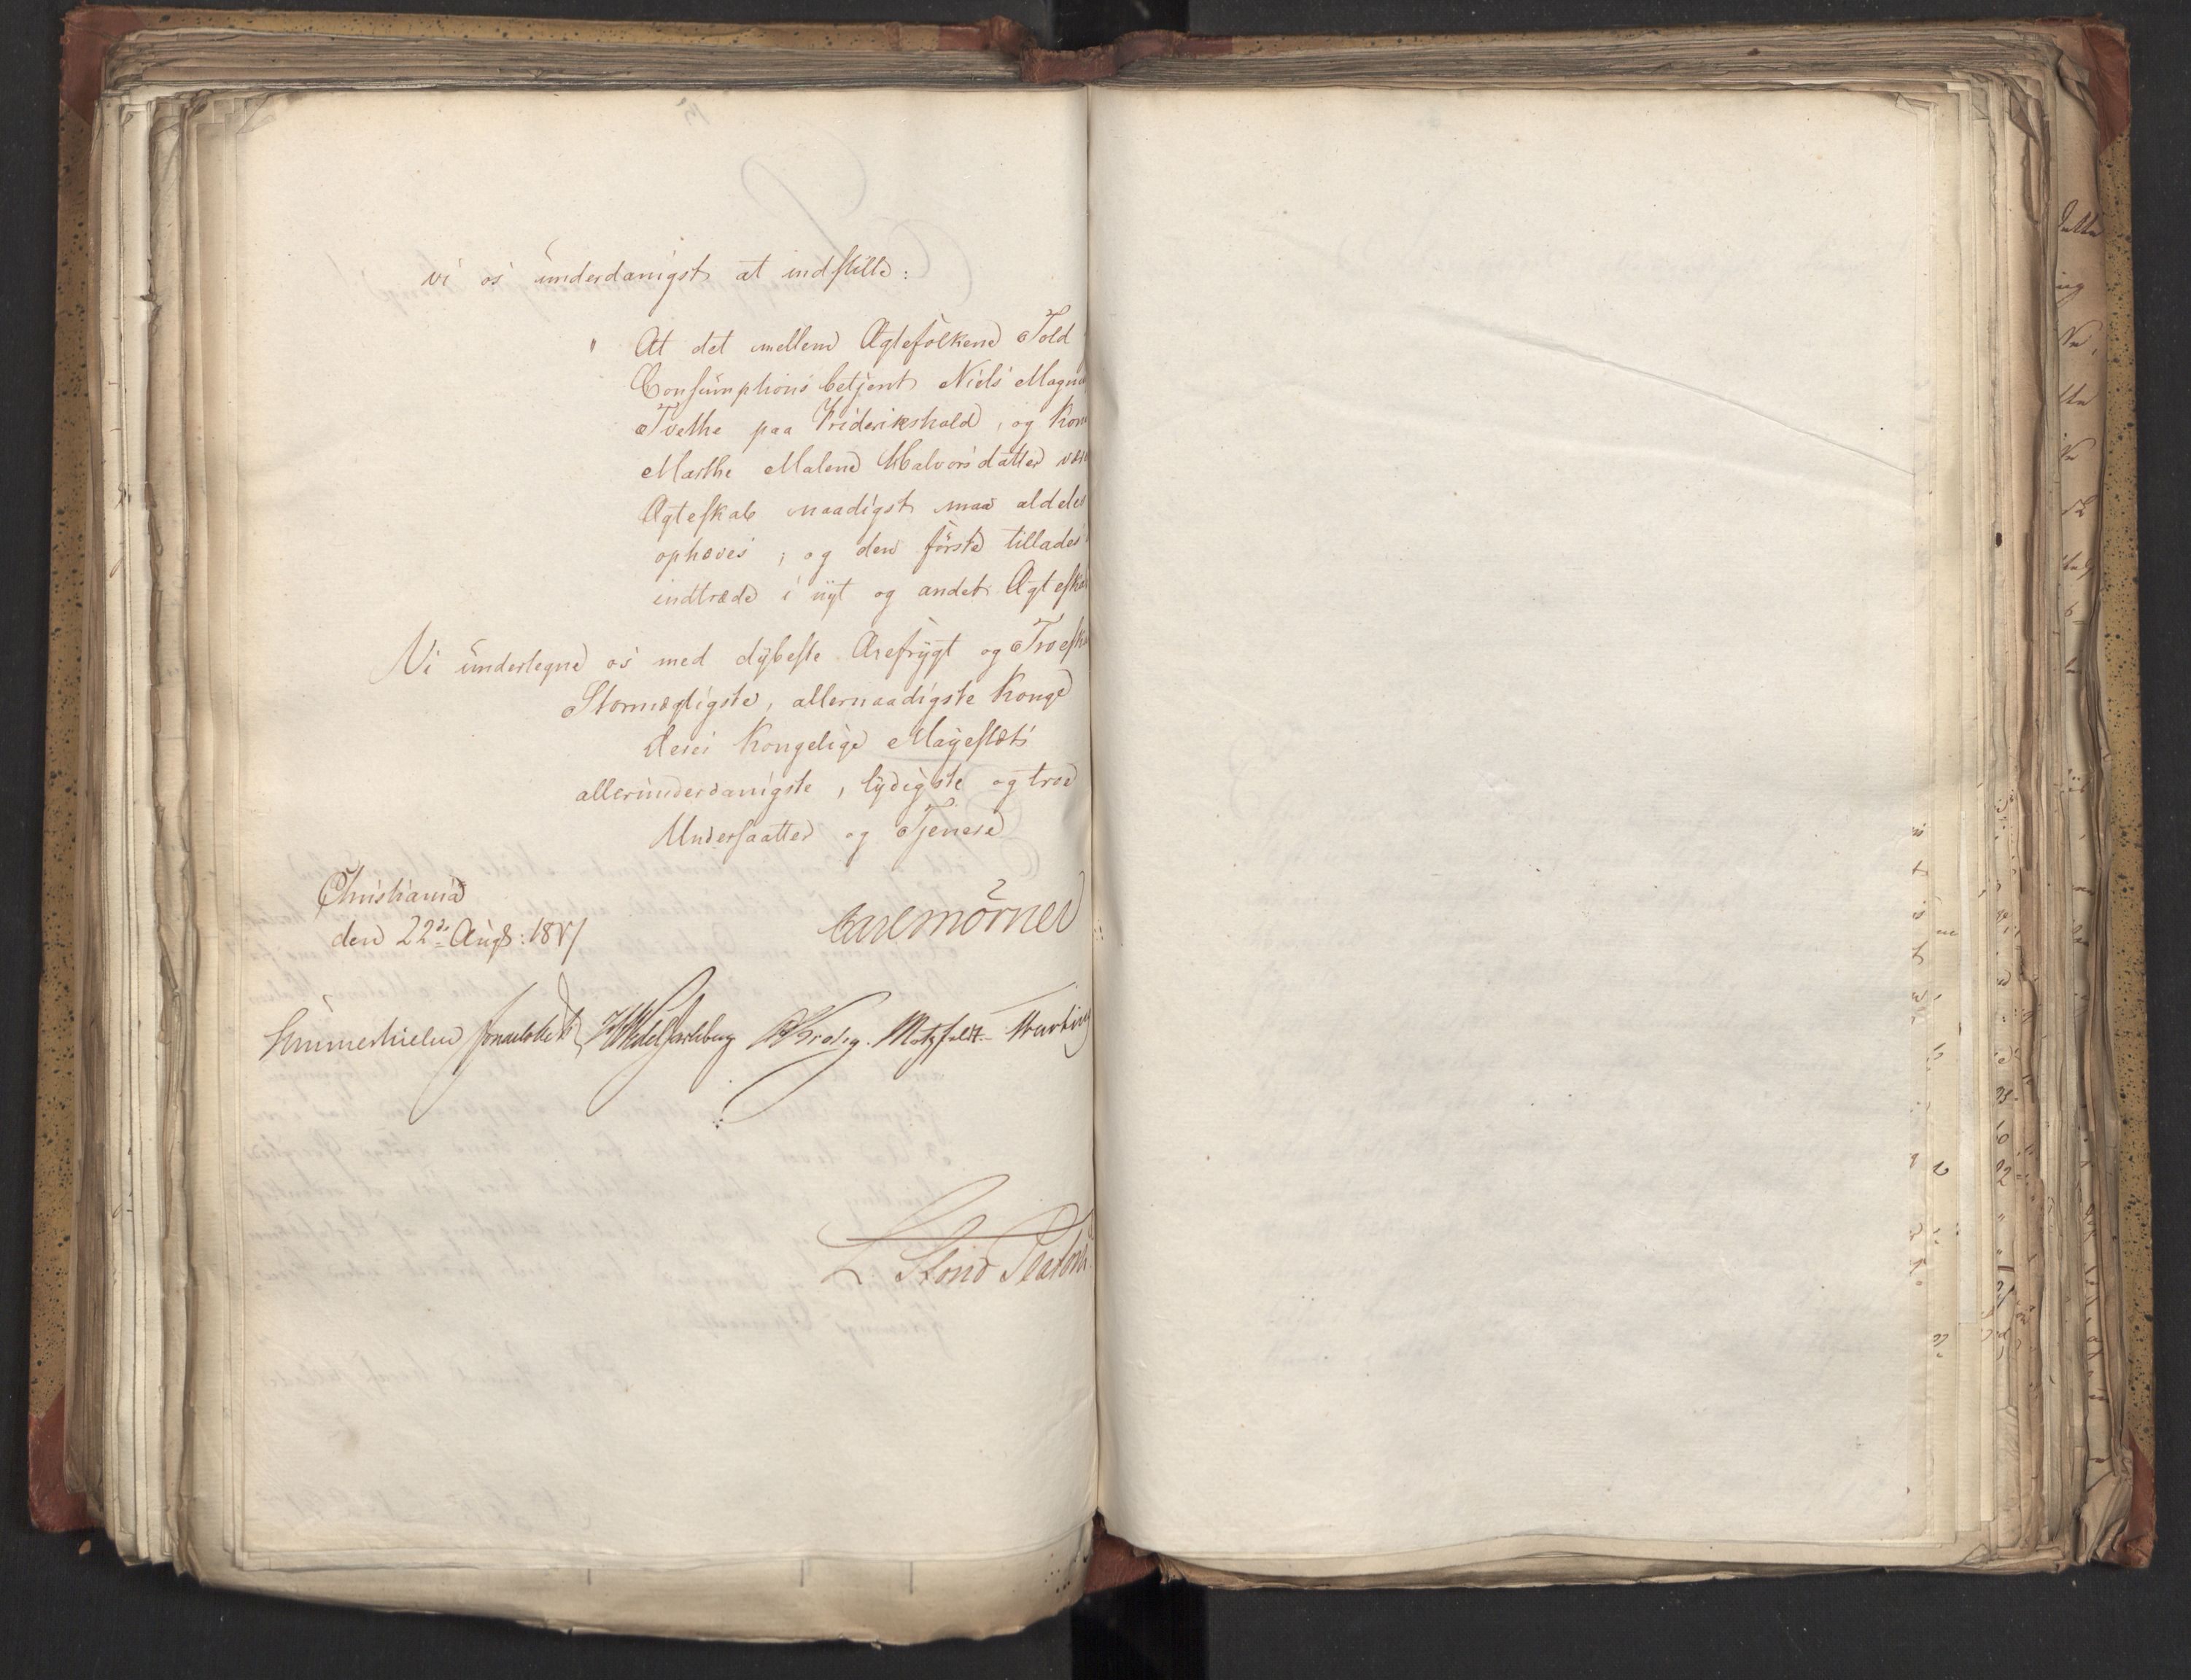 vi os underdanigst at indstille:
" At det mellem Ægtefolkene Told
Consumptions betjent Niels Magn
Tvethe paa Friderikshald, og Kon
Marthe Malene Halvorsdatter vær
Ægteskab naadigst maa aldeles
ophæves; og den første tillades
indtræde i nyt og andet Ægteska
Vi undertegne os med dybeste Ærefrygt og Troesk
Stormægtigste, allernaadigste Konge
Deres Kongelige Majestæts
allerunderdanigste, lydigste og troe
Undersaatter og Tjenere
Christiania
den 22de Augs: 1817
Carl Mörner
Sommerhielm Jonas Collett HWedel Jarlsberg Krohg. Motzfeldt
L Stoud Platou